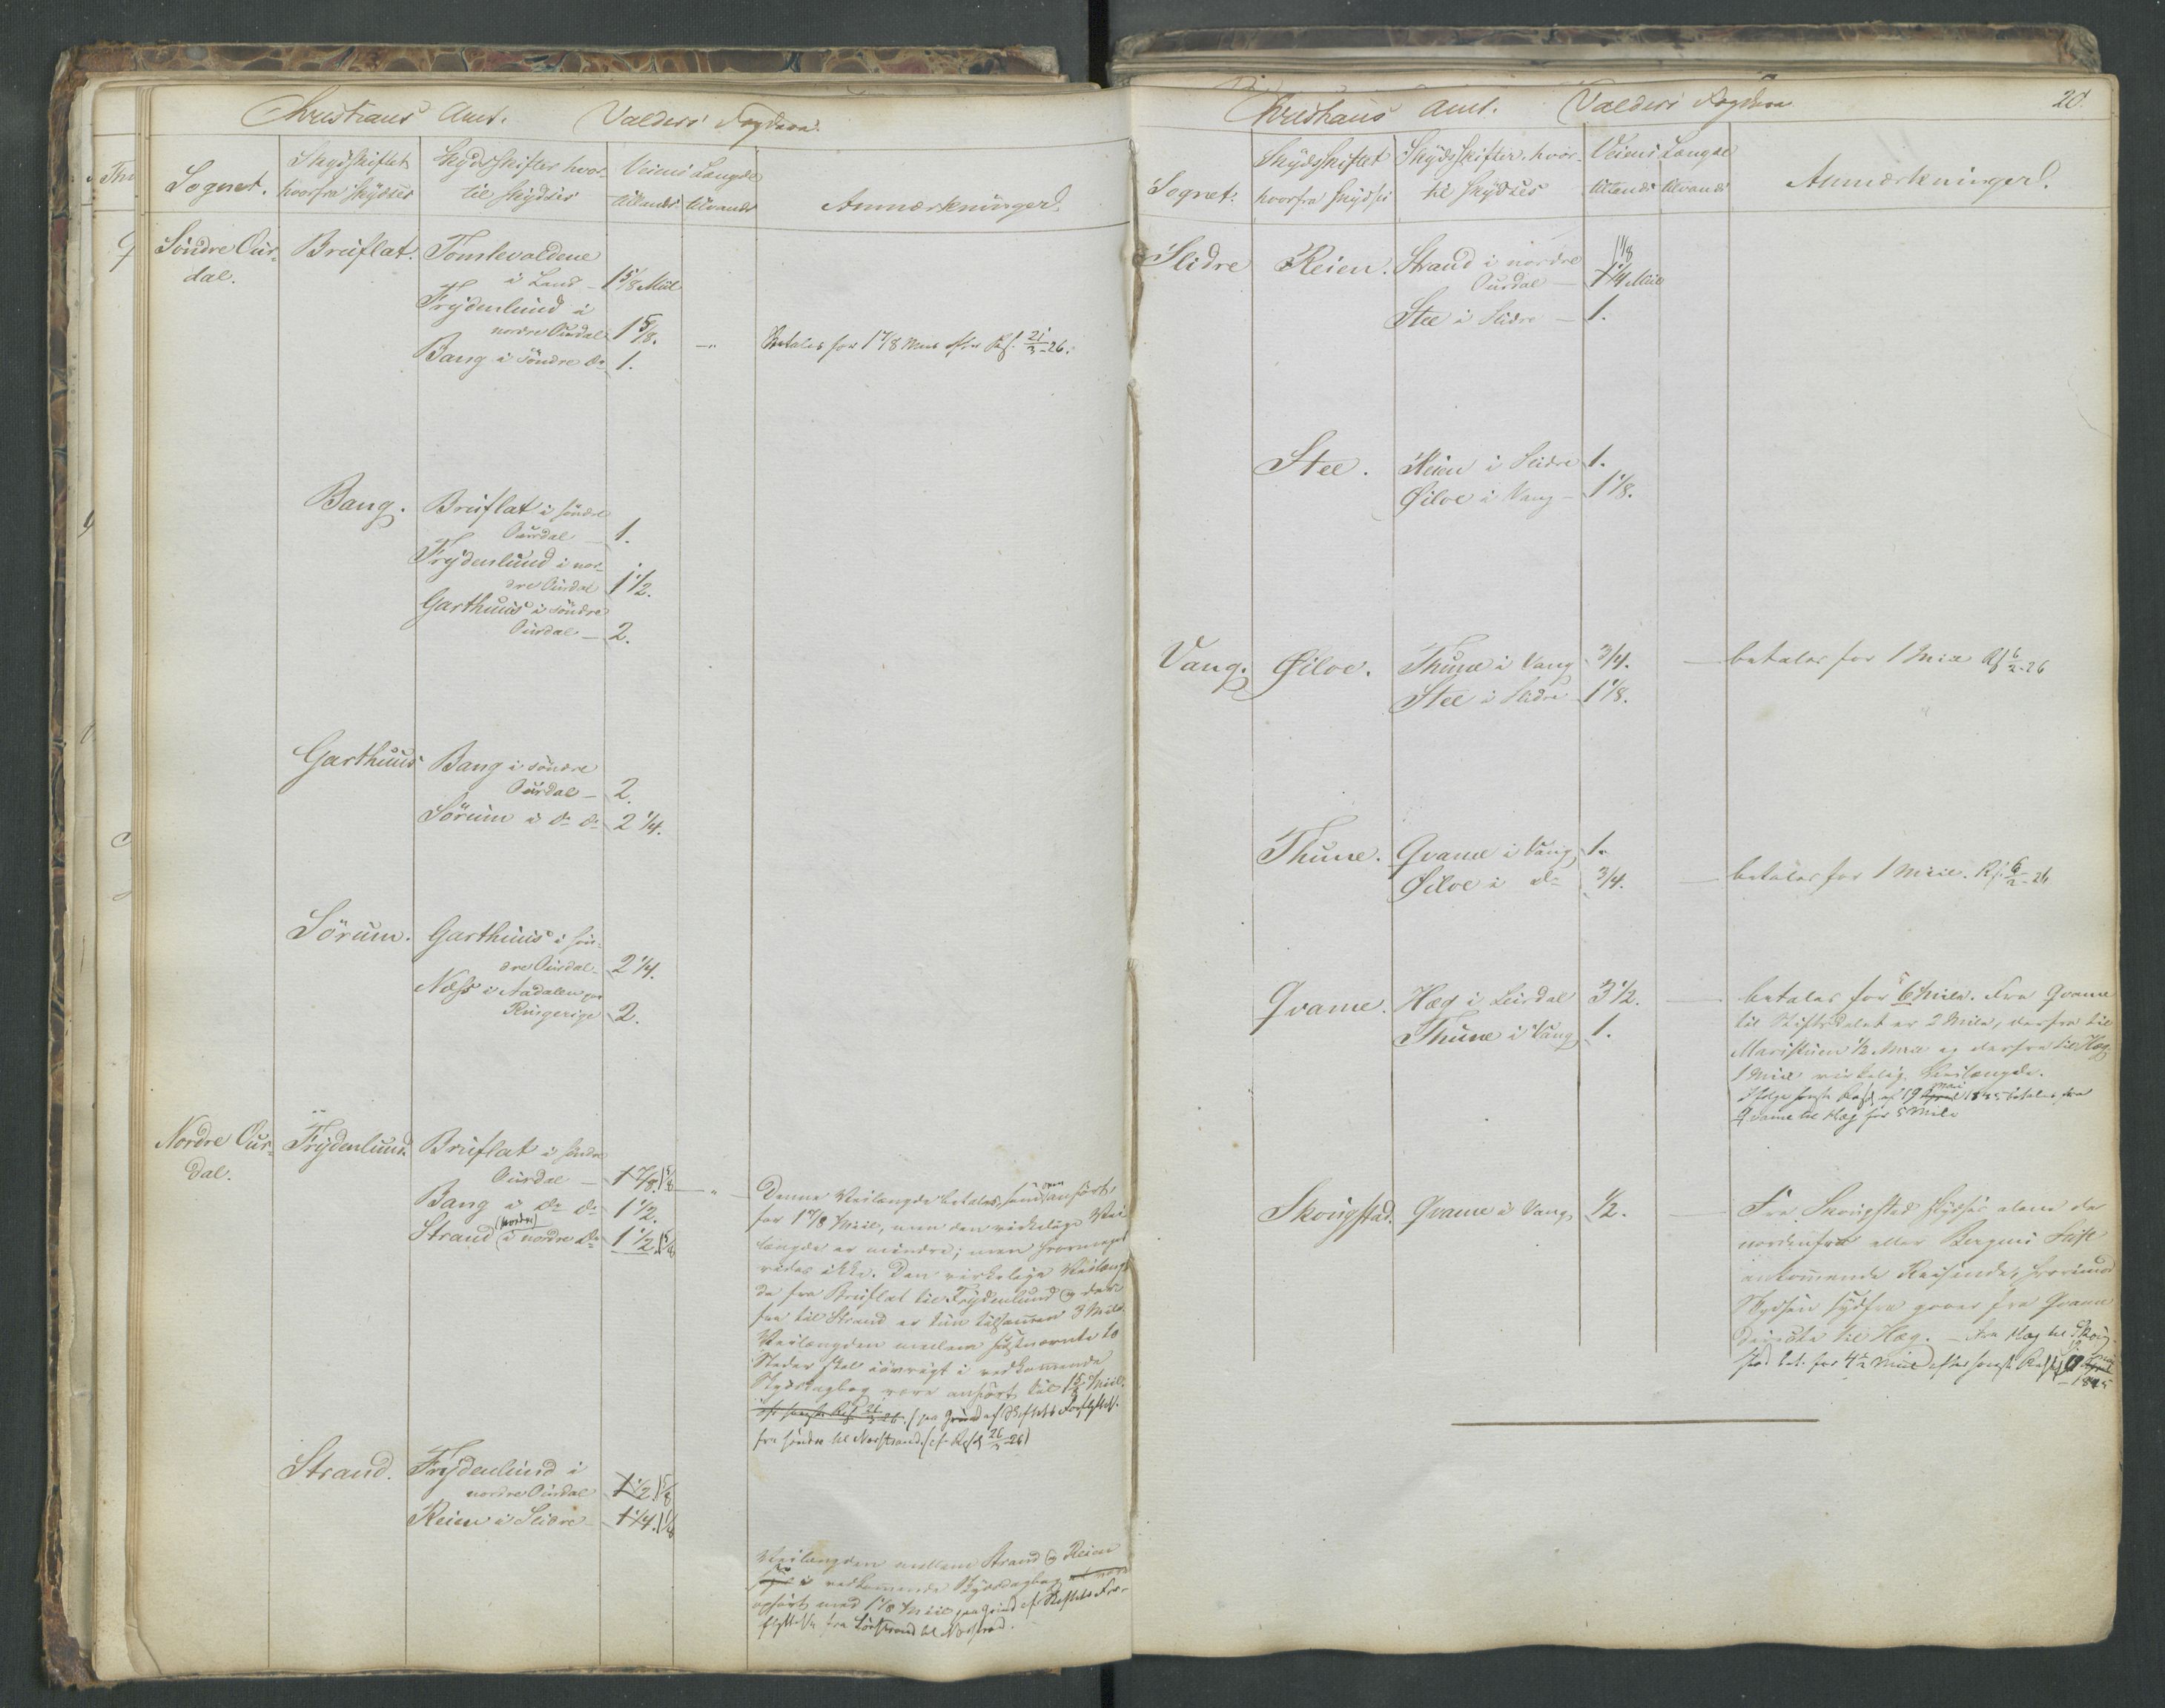 Christians Amt. Valders Fogderi
Sognet.
Skydsskiftet
hvorfra skydses
Skydsskifter hvor-
til skydses
Veiens Længde
tillands tilvands
Anmærkninger.
Söndre Our-
dal.
Bruflat. Tomlevoldene
i Land - 1 5/8 Miil
Frydenlund i
nordre Ourdal 1 5/8. - " Betales for 1 7/8 Miil efter Res. 21/3-26.
Bang i söndre do 1.
Bang. Bruflat i söndre
Ourdal - 1.
Frydenlund i nor-
dre Ourdal 1 1/2.
Garthuus i söndre
Ourdal - 2.
Garthuus Bang i söndre
Ourdal - 2.
Sörum i do do 2 1/4.
Sörum. Garthuus i sön-
dre Ourdal - 2 1/4.
Næss i Aadalen
Ringerige 2.
Nordre Our-
dal.
Frydenlund. Bruflat i söndre
Ourdal - 1 7/8. 1 5/8 - "
Bang i do do 1 1/2.
Strand (nordre) i nordre do 1 1/2. 1 5/8
Denne Veilængde betales, som oven anfört,
for 1 7/8 Miil, men den virkelige Vei-
længde er mindre; men hvormeget
vides ikke. Den virkelige Veilæng-
de fra Bruflat til Frydenlund og der-
fra til Strand er kun tilsammen 3 Mile.
Veilængden mellem sidstnævnte to
Steder skal iövrigt i vedkommende
Skydsdagbog være anfört til 1 5/8 Miil.
efter Res. 21/3-26. paa Grund af Skiftets Forflyttelse
fra söndre til Norstrand. (cf. Res. 26/3-26)
Strand. Frydenlund i
nordre Ourdal 1 1/2. 1 5/8
Reien i Slidre - 1 1/4. 1 1/8
Veilængden mellem Strand og Reien
i vedkommende Skydsdagbog
opfört med 1 1/8 Miil paa Grund af Skiftets For-
flyttelse fra Sörstrand til Norstrand.
Christians Amt. Valders Fogderi 20.
Sognet.
Skydsskiftet
hvorfra skydses
Skydsskifter hvor-
til skydses
Veiens Længde
tillands tilvands
Anmærkninger.
Slidre Reien. Strand i nordre 1 1/8
Ourdal - 1 1/4 Miil
Stee i Slidre - 1.
Stee. Reien i Slidre 1.
Øiloe i Vang - 1 1/8.
Vang. Øiloe. Thune i Vang 3/4. - betales for 1 Miil Res. 6/2-26
Stee i Slidre - 1 1/8.
Thune. Qvame i Vang 1.
Øiloe i do 3/4. - betales for 1 Miil. Res. 6/2-26
Qvame. Hæg i Leirdal 3 1/2. - betales for 6 Mile. Fra Qvame
Thune i Vang 1.
til Stiftsdelet er 2 Mile, derfra til
Maristuen 1/2 Miil og derfra til Hæg
1 Miil virkelig Veilængde.
Ifölge kongl. Res. af 19 April Mai 1845 betales fra
Qvame til Hæg for 5 Mile
Skougstad. Qvame i Vang 1/2. - Fra Skougstad skydses alene de
nordenfra eller Bergens Stift
ankommende Reisende, hvorimod
Skydsen sydfra gaaer fra Qvame
directe til Hæg. - Fra Hæg til Skoug-
stad bet. for 4 1/2 Miil efter kongl. Res. 19 April Mai
1845